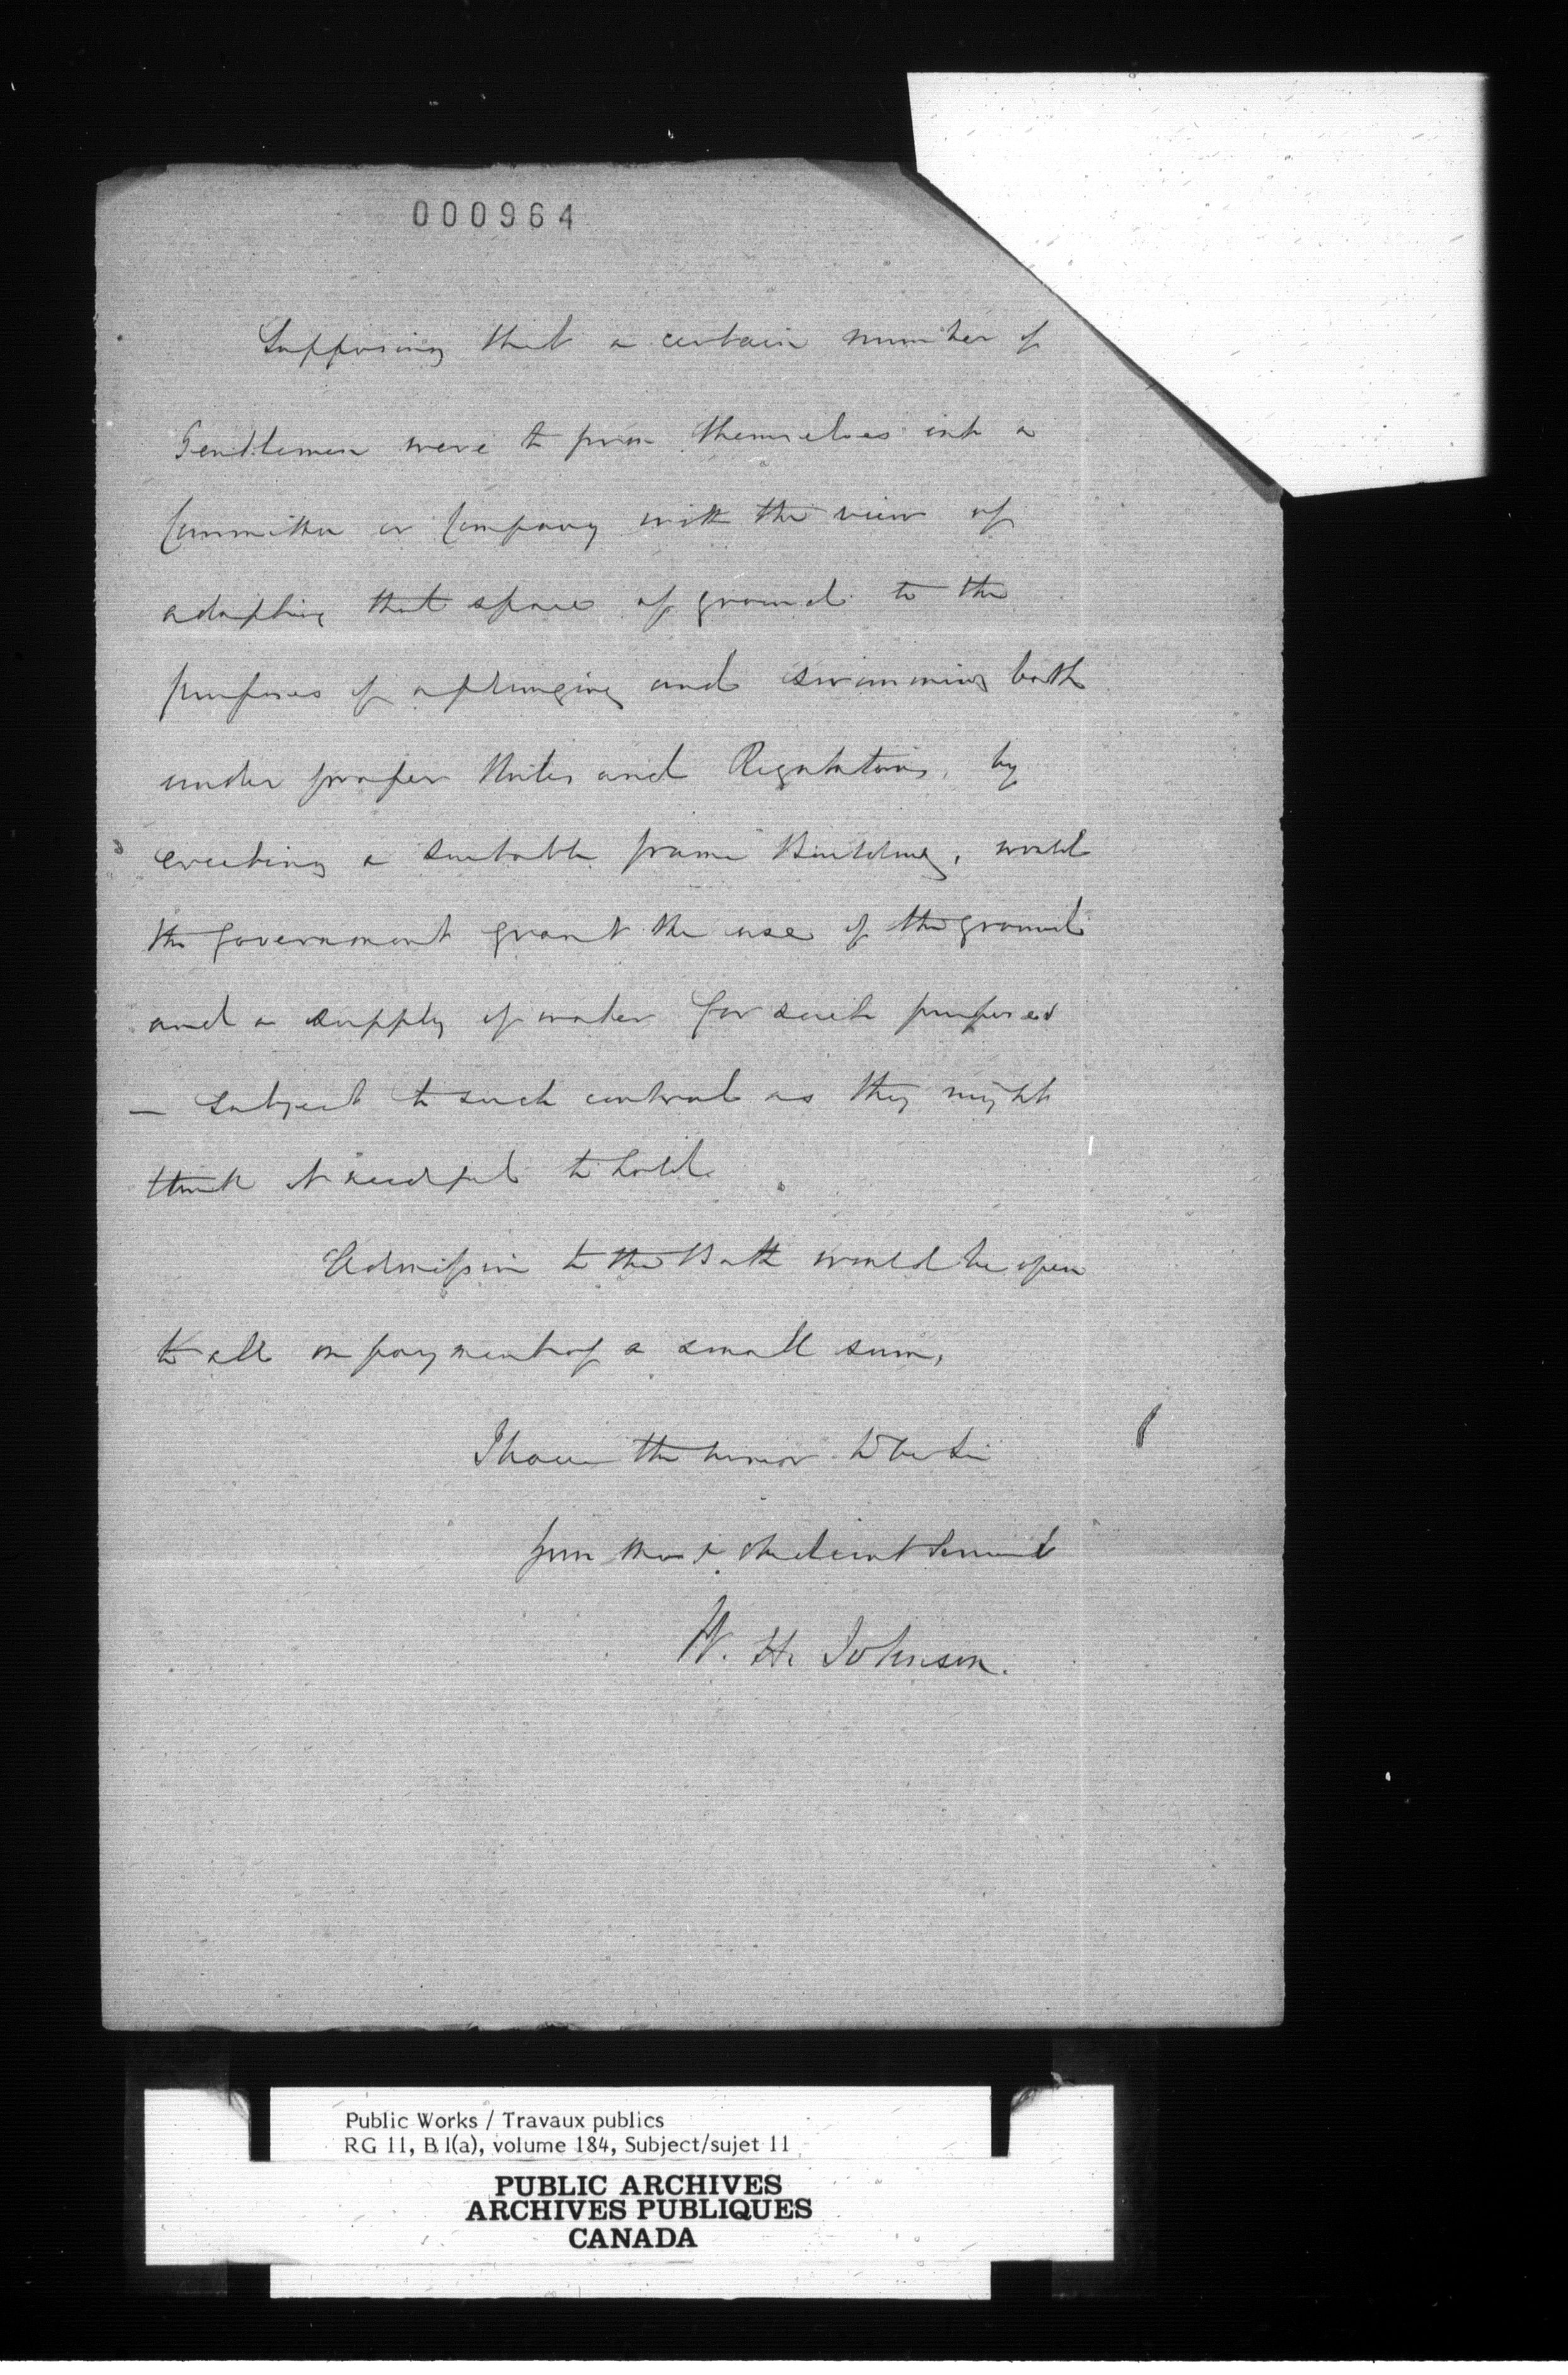 000964
Supposing that a certain number of
Gentlemen were to form themselves into a
Committee or Company with the view of
adapting that space of ground to the
purposes of a plunging and swimming bath
under proper Rules and Regulations, by
erecting a suitable frame Building, would
the Government grant the use of the ground
and a supply of water for such purposes
— subject to such control as they might
think it needful to hold.
Admission to the Bath would be open
to all on payment of a small sum.
I have the honor to be Sir
Your most obedient Servant
W. H. Johnson.
Public Works / Travaux publics
RG 11, B 1(a), volume 184, Subject/sujet 11
PUBLIC ARCHIVES
ARCHIVES PUBLIQUES
CANADA